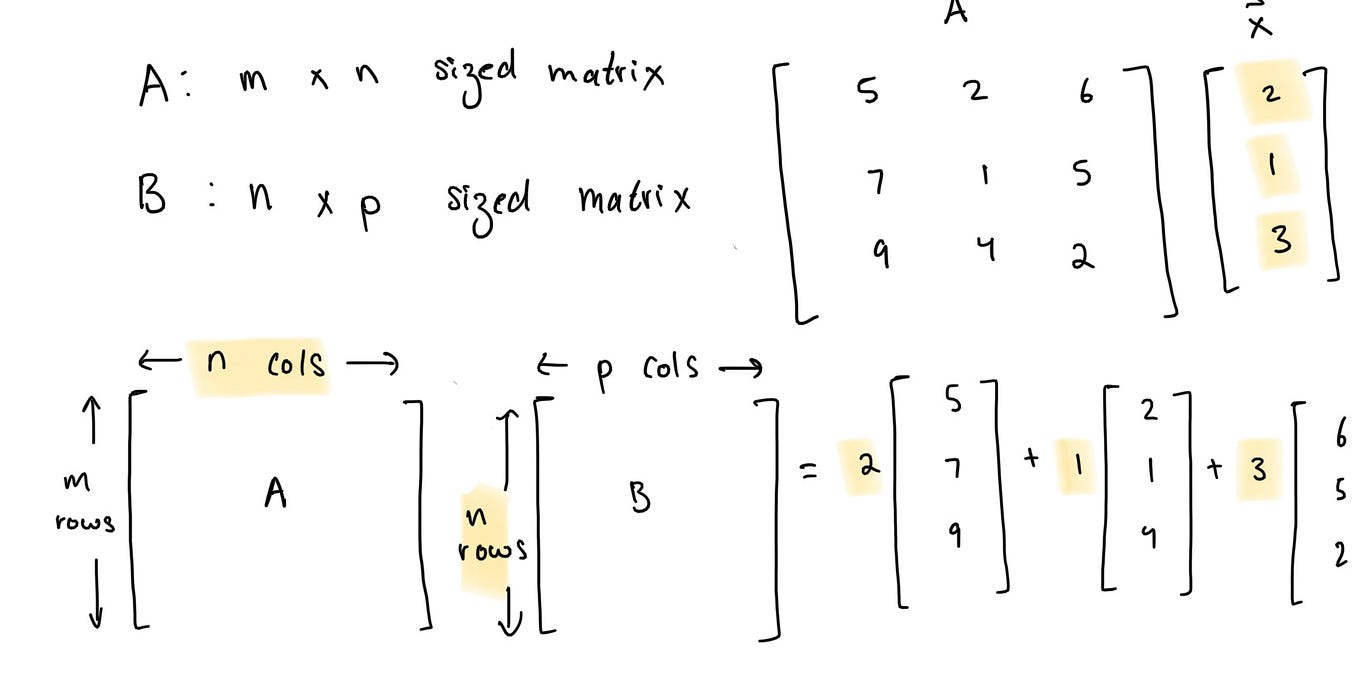 A: m x n sized matrix
B : n x p sized matrix
A
x
5 2 6
7 1 5
9 4 2
2
1
3
← n cols →
m
rows
A
← p cols →
n
rows
B
= 2 [5 7 9] + 1 [2 1 4] + 3 [6 5 2